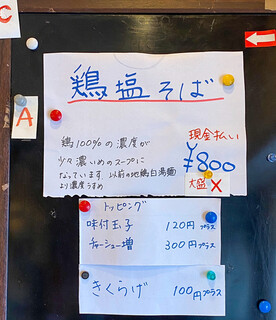 C
鶏塩そば
A
鶏100%の濃度が
少々濃いめのスープに
なっています 以前の地鶏白湯麺
より濃度うすめ
現金払い
¥800
大盛×
トッピング
味付玉子 120円プラス
チャーシュー増 300円プラス
きくらげ 100円プラス